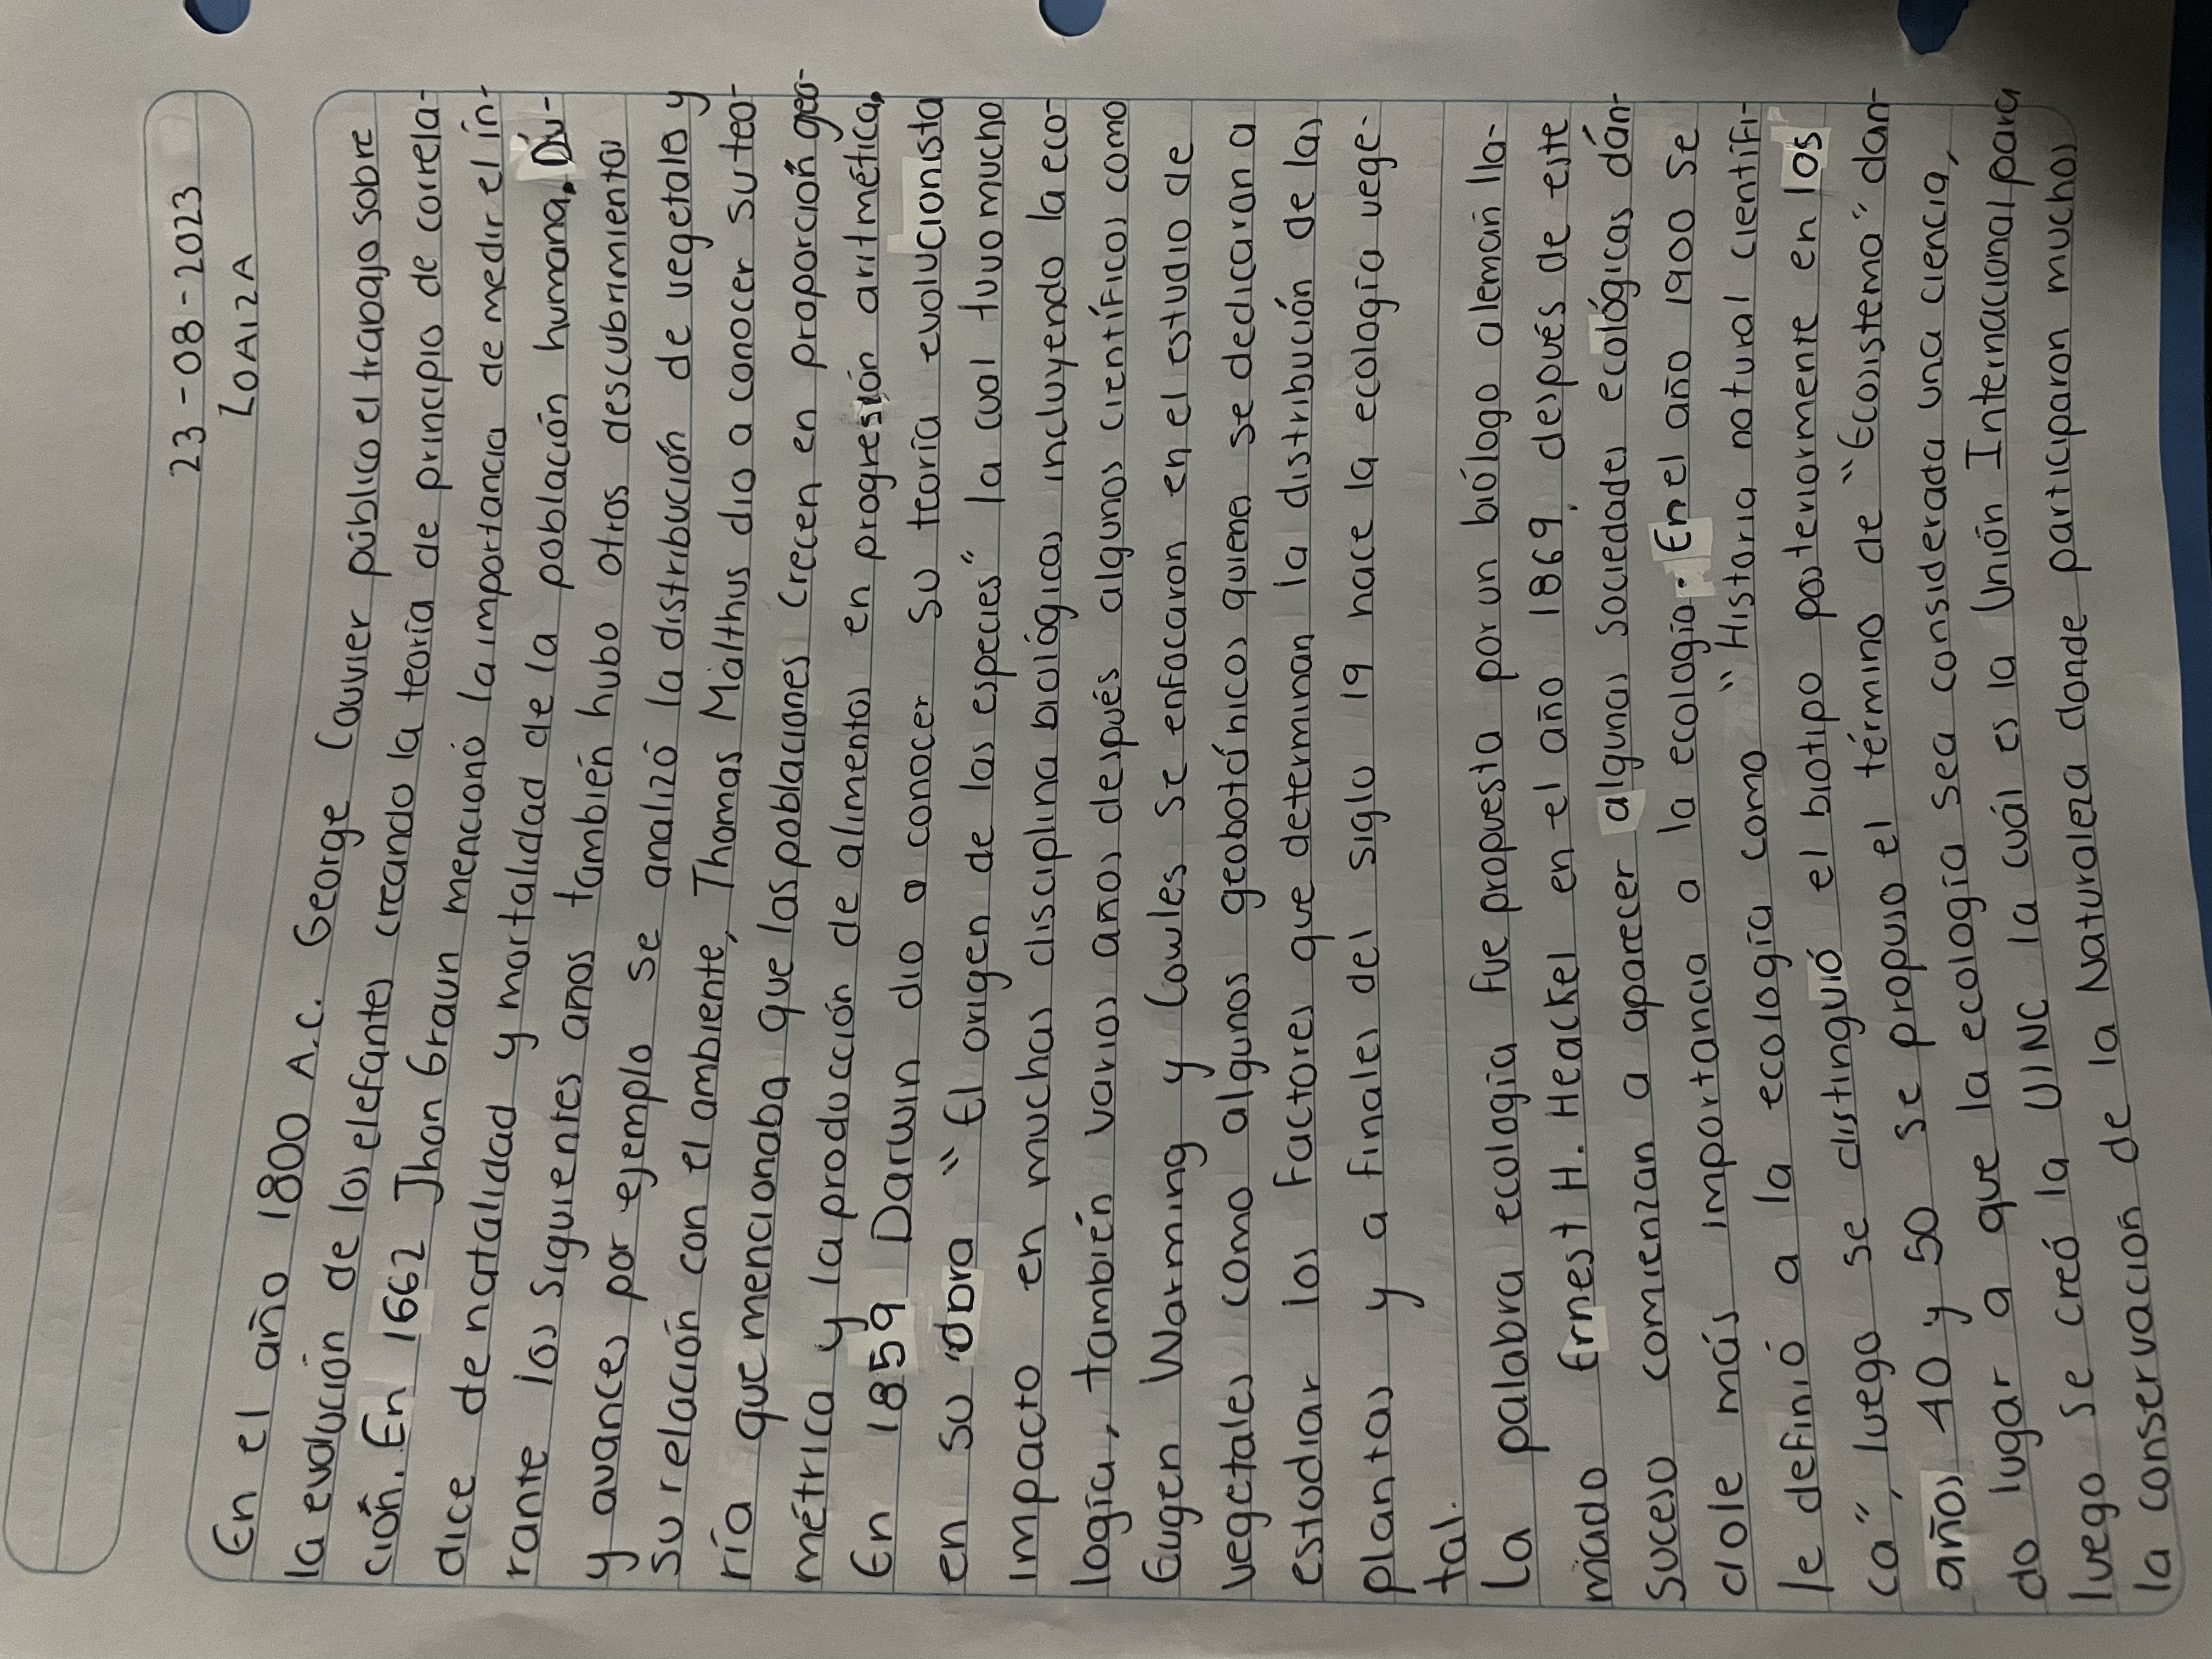 23-08-2023
LOAIZA
En el año 1800 A.C. George Couvier público el trabajo sobre
la evolución de los elefantes creando la teoría de principio de correla-
ción. En 1662 Jhon Graun mencionó la importancia de medir el ín-
dice de natalidad y mortalidad de la población humana. Du-
rante los siguientes años también hubo otros descubrimientos
y avances por ejemplo se analizó la distribución de vegetales y
su relación con el ambiente, Thomas Malthus dio a conocer su teo-
ría que mencionaba que las poblaciones crecen en proporción geo-
métrica y la producción de alimentos en progresión aritmética.
En 1859 Darwin dio a conocer su teoría evolucionista
en su obra "El origen de las especies" la cual tuvo mucho
impacto en muchas disciplina biológicas incluyendo la eco-
logía, también varios años después algunos científicos como
Eugen Warming y Cowles se enfocaron en el estudio de
vegetales como algunos geobotánicos quienes se dedicaron a
estudiar los factores que determinan la distribución de las
plantas y a finales del siglo 19 nace la ecología vege-
tal.
La palabra ecología fue propuesta por un biólogo alemán lla-
mado Ernest H. Heackel en el año 1869, después de este
suceso comienzan a aparecer algunas sociedades ecológicas dán-
dole más importancia a la ecología. En el año 1900 se
le definió a la ecología como "Historia natural científi-
ca", luego se distinguió el biotipo posteriormente en los
años 40 y 50 se propuso el término de "Ecosistema" dan-
do lugar a que la ecología sea considerada una ciencia,
luego se creó la UINC la cuál es la Unión Internacional para
la conservación de la Naturaleza donde participaron muchos